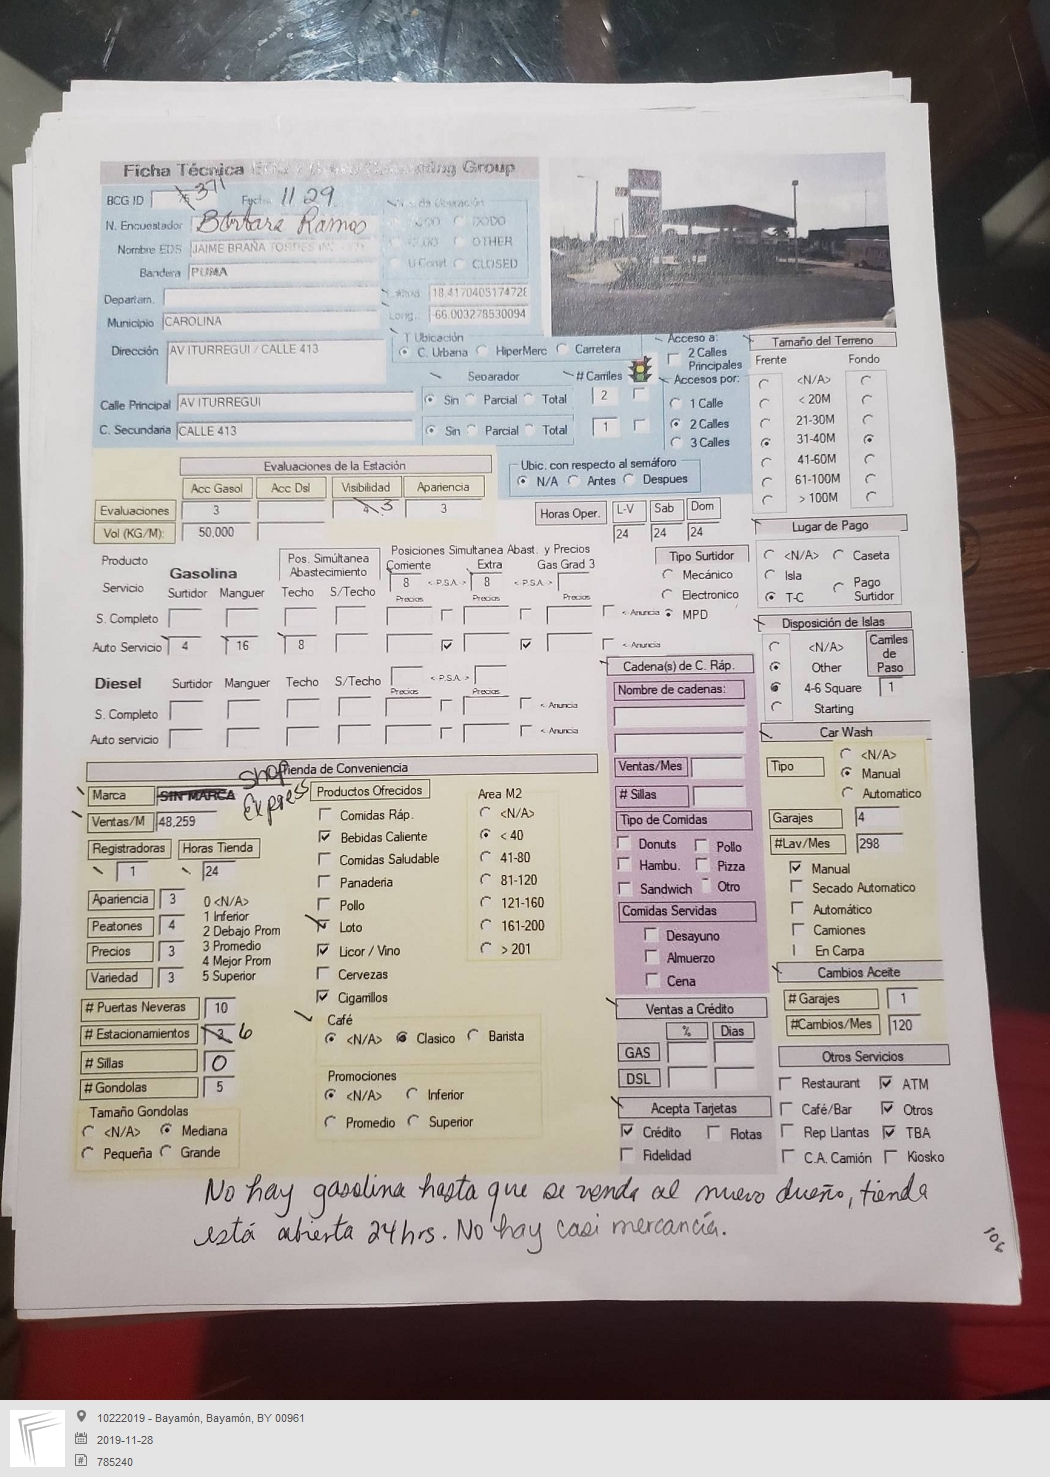 Ficha Técnica Group
BCG ID 371 11 29
N. Encuestador Bárbara Ramos
Nombre EDS JAIME BRAÑA TORRES
DODO
OTHER
U Const CLOSED
Bandera PUMA
Departam.
18.4170405174728
Long. -66.003278530094
Municipio CAROLINA
Dirección AV ITURREGUI / CALLE 413
T Ubicación
C. Urbana HiperMerc Carretera
Acceso a:
2 Calles
Principales
Separador # Carriles Accesos por:
Calle Principal AV ITURREGUI Sin Parcial Total 2 1 Calle
C. Secundaria CALLE 413 Sin Parcial Total 1 2 Calles
3 Calles
Tamaño del Terreno
Frente Fondo
<N/A>
< 20M
21-30M
31-40M
41-60M
61-100M
> 100M
Evaluaciones de la Estación
Acc Gasol Acc Dsl Visibilidad Apariencia
Evaluaciones 3 4 3 3
Vol (KG/M): 50,000
Ubic. con respecto al semáforo
N/A Antes Despues
Horas Oper. L-V Sab Dom
24 24 24
Lugar de Pago
<N/A> Caseta
Isla
T-C Pago
Surtidor
Producto Gasolina Pos. Simúltanea
Abastecimiento
Posiciones Simultanea Abast. y Precios
Corriente Extra Gas Grad 3
8 < P.S.A. > 8 < P.S.A. >
Servicio Surtidor Manguer Techo S/Techo Precios Precios Precios
S. Completo < Anuncia
Auto Servicio 4 16 8 < Anuncia
Tipo Surtidor
Mecánico
Electronico
MPD
Disposición de Islas
<N/A>
Other
4-6 Square
Starting
Carriles
de
Paso
1
Diesel Surtidor Manguer Techo S/Techo < P.S.A. >
Precios Precios
S. Completo < Anuncia
Auto servicio < Anuncia
Cadena(s) de C. Ráp.
Nombre de cadenas:
Ventas/Mes
# Sillas
Tipo de Comidas
Donuts Pollo
Hambu. Pizza
Sandwich Otro
Comidas Servidas
Desayuno
Almuerzo
Cena
Car Wash
Tipo <N/A>
Manual
Automatico
Garajes 4
#Lav/Mes 298
Manual
Secado Automatico
Automático
Camiones
En Carpa
Cambios Aceite
# Garajes 1
#Cambios/Mes 120
Tienda de Conveniencia
Marca SIN MARCA Shop Express
Ventas/M 48,259
Registradoras Horas Tienda
1 24
Apariencia 3
Peatones 4
Precios 3
Variedad 3
0 <N/A>
1 Inferior
2 Debajo Prom
3 Promedio
4 Mejor Prom
5 Superior
# Puertas Neveras 10
# Estacionamientos 6
# Sillas 0
# Gondolas 5
Tamaño Gondolas
<N/A> Mediana
Pequeña Grande
Productos Ofrecidos
Comidas Ráp.
Bebidas Caliente
Comidas Saludable
Panaderia
Pollo
Loto
Licor / Vino
Cervezas
Cigarrillos
Area M2
<N/A>
< 40
41-80
81-120
121-160
161-200
> 201
Café
<N/A> Clasico Barista
Promociones
<N/A> Inferior
Promedio Superior
Ventas a Crédito
% Dias
GAS
DSL
Acepta Tarjetas
Crédito Flotas
Fidelidad
Otros Servicios
Restaurant ATM
Café/Bar Otros
Rep Llantas TBA
C.A. Camión Kiosko
No hay gasolina hasta que se venda al nuevo dueño, tienda
está abierta 24 hrs. No hay casi mercancía.
106
10222019 - Bayamón, Bayamón, BY 00961
2019-11-28
785240